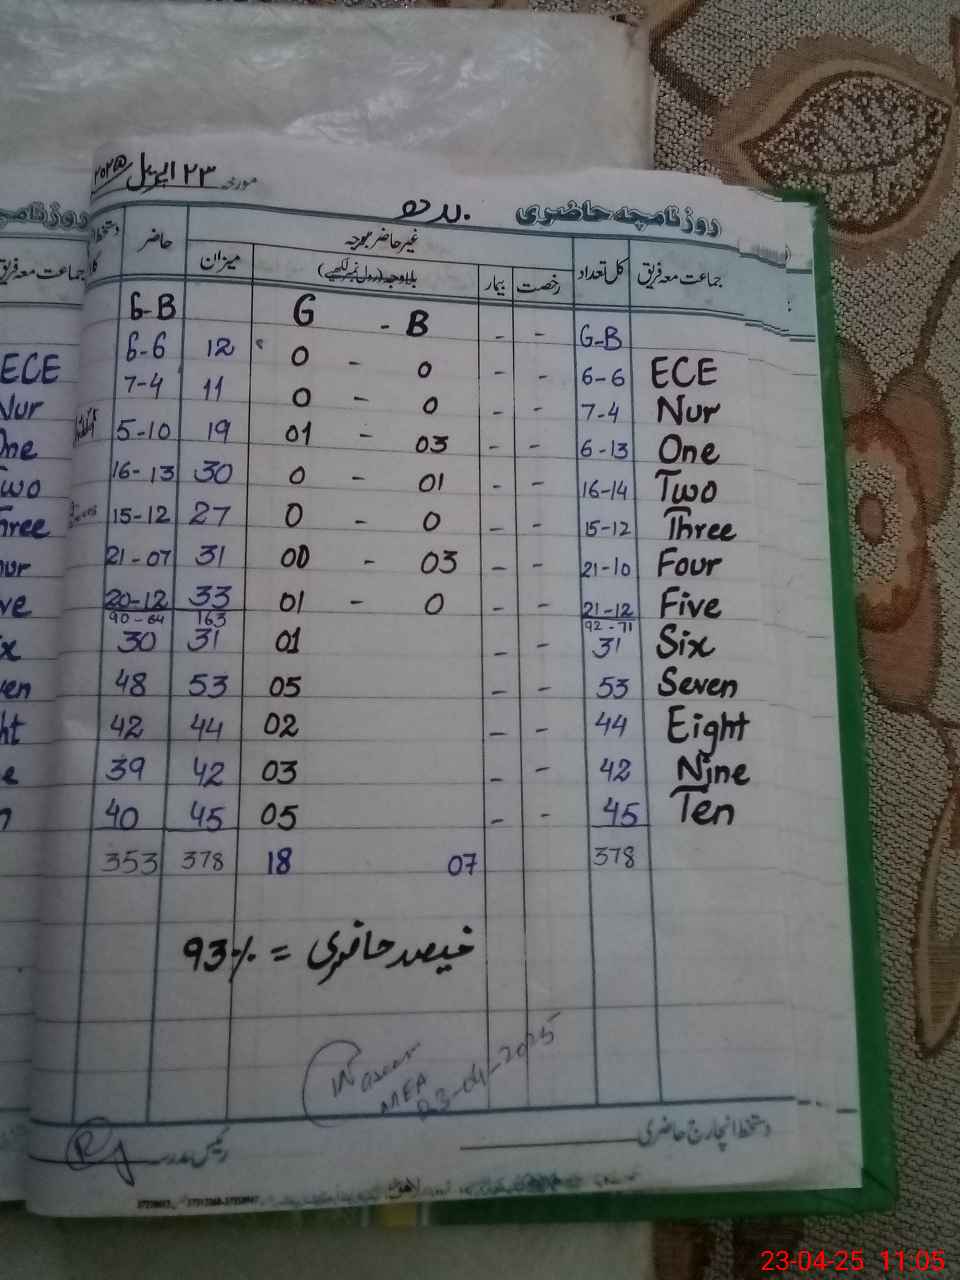 مورخہ ۲۳ اپریل ۲۰۲۵
روزنامچہ حاضری بدھ
جماعت معہ فریق کل تعداد رخصت بیمار غیر حاضر بمدرجہ میزان حاضر
بلاوجہ (رول نمبر لکھیے)
G-B G - B - - G-B
6-6 12 0 - 0 - - 6-6 ECE
7-4 11 0 - 0 - - 7-4 Nur
5-10 19 01 - 03 - - 6-13 One
16-13 30 0 - 01 - - 16-14 Two
15-12 27 0 - 0 - - 15-12 Three
21-07 31 00 - 03 - - 21-10 Four
20-12 33 01 - 0 - - 21-12 Five
90-64 163 92-71
30 31 01 - - 31 Six
48 53 05 - - 53 Seven
42 44 02 - - 44 Eight
39 42 03 - - 42 Nine
40 45 05 - - 45 Ten
353 378 18 07 378
فیصد حاضری = 93%
Waseem
MEA
23-04-2025
دستخط انچارج حاضری
رئیس مدرسہ
ECE
Nur
One
Two
Three
23-04-25 11:05